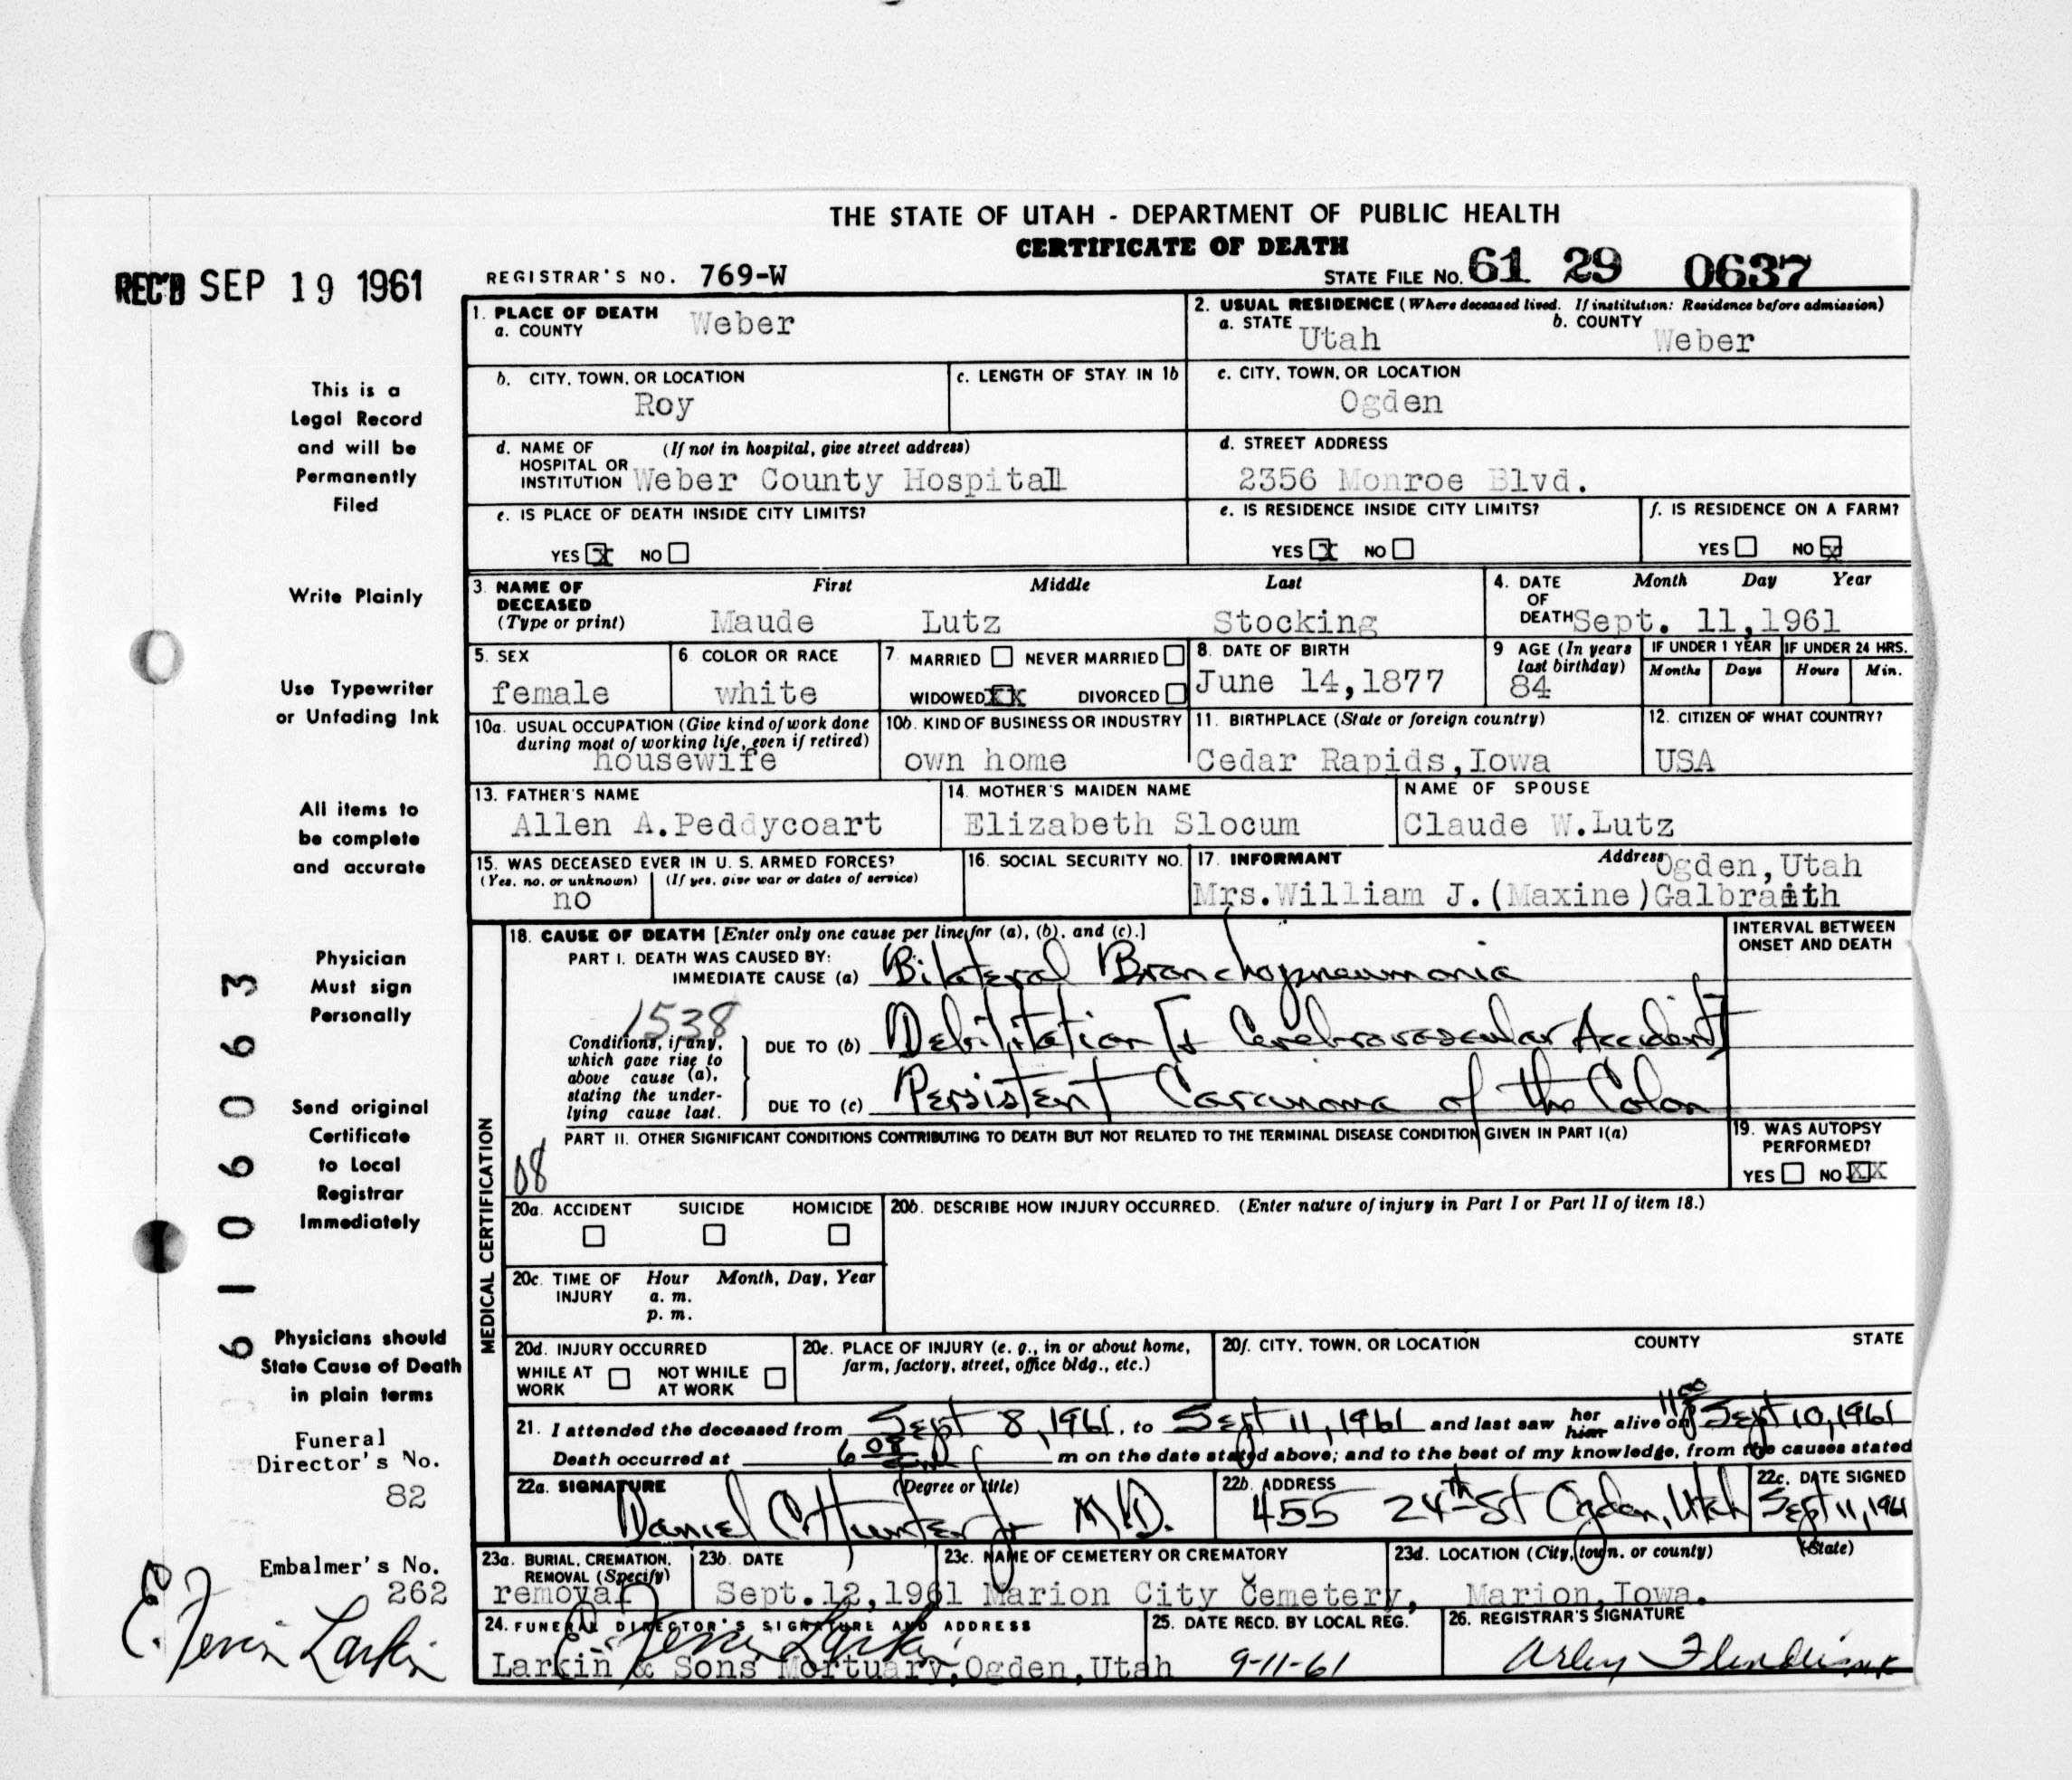 THE STATE OF UTAH - DEPARTMENT OF PUBLIC HEALTH
CERTIFICATE OF DEATH
REC'D SEP 19 1961
REGISTRAR'S NO. 769-W
STATE FILE NO. 61 29 0637
This is a
Legal Record
and will be
Permanently
Filed
Write Plainly
Use Typewriter
or Unfading Ink
All items to
be complete
and accurate
Physician
Must sign
Personally
Send original
Certificate
to Local
Registrar
Immediately
Physicians should
State Cause of Death
in plain terms
Funeral
Director's No.
82
Embalmer's No.
262
E. Larkin
6106063
1. PLACE OF DEATH
a. COUNTY Weber
2. USUAL RESIDENCE (Where deceased lived. If institution: Residence before admission)
a. STATE Utah b. COUNTY Weber
b. CITY, TOWN, OR LOCATION
Roy
c. LENGTH OF STAY IN 1b
c. CITY, TOWN, OR LOCATION
Ogden
d. NAME OF (If not in hospital, give street address)
HOSPITAL OR
INSTITUTION Weber County Hospital
d. STREET ADDRESS
2356 Monroe Blvd.
e. IS PLACE OF DEATH INSIDE CITY LIMITS?
YES X NO
e. IS RESIDENCE INSIDE CITY LIMITS?
YES X NO
f. IS RESIDENCE ON A FARM?
YES NO X
3. NAME OF
DECEASED
(Type or print)
First Middle Last
Maude Lutz Stocking
4. DATE Month Day Year
OF
DEATH Sept. 11,1961
5. SEX
female
6. COLOR OR RACE
white
7 MARRIED NEVER MARRIED
WIDOWED XX DIVORCED
8. DATE OF BIRTH
June 14,1877
9 AGE (In years
last birthday)
84
IF UNDER 1 YEAR IF UNDER 24 HRS.
Months Days Hours Min.
10a. USUAL OCCUPATION (Give kind of work done
during most of working life, even if retired)
housewife
10b. KIND OF BUSINESS OR INDUSTRY
own home
11. BIRTHPLACE (State or foreign country)
Cedar Rapids,Iowa
12. CITIZEN OF WHAT COUNTRY?
USA
13. FATHER'S NAME
Allen A.Peddycoart
14. MOTHER'S MAIDEN NAME
Elizabeth Slocum
NAME OF SPOUSE
Claude W.Lutz
15. WAS DECEASED EVER IN U. S. ARMED FORCES?
(Yes, no, or unknown) (If yes, give war or dates of service)
no
16. SOCIAL SECURITY NO.
17. INFORMANT Address Ogden,Utah
Mrs.William J.(Maxine)Galbraith
MEDICAL CERTIFICATION
18. CAUSE OF DEATH [Enter only one cause per line for (a), (b), and (c).]
PART I. DEATH WAS CAUSED BY:
IMMEDIATE CAUSE (a) Bilateral Bronchopneumonia
1538
Conditions, if any,
which gave rise to
above cause (a),
stating the under-
lying cause last.
DUE TO (b) Debilitation [ Cerebrovascular Accident]
DUE TO (c) Persistent Carcinoma of the Colon
INTERVAL BETWEEN
ONSET AND DEATH
PART II. OTHER SIGNIFICANT CONDITIONS CONTRIBUTING TO DEATH BUT NOT RELATED TO THE TERMINAL DISEASE CONDITION GIVEN IN PART I(a)
08
19. WAS AUTOPSY
PERFORMED?
YES NO XX
20a. ACCIDENT SUICIDE HOMICIDE
20b. DESCRIBE HOW INJURY OCCURRED. (Enter nature of injury in Part I or Part II of item 18.)
20c. TIME OF Hour Month, Day, Year
INJURY a. m.
p. m.
20d. INJURY OCCURRED
WHILE AT WORK NOT WHILE AT WORK
20e. PLACE OF INJURY (e. g., in or about home,
farm, factory, street, office bldg., etc.)
20f. CITY, TOWN, OR LOCATION COUNTY STATE
21. I attended the deceased from Sept 8, 1961, to Sept 11, 1961 and last saw her him alive on Sept 10, 1961
Death occurred at 6 m on the date stated above; and to the best of my knowledge, from the causes stated
22a. SIGNATURE (Degree or title)
Daniel C Hunter Jr M.D.
22b. ADDRESS
455 24th St Ogden, Utah
22c. DATE SIGNED
Sept 11, 1961
23a. BURIAL, CREMATION,
REMOVAL (Specify)
removal
23b. DATE
Sept.12,1961
23c. NAME OF CEMETERY OR CREMATORY
Marion City Cemetery,
23d. LOCATION (City, town, or county) (State)
Marion,Iowa.
24. FUNERAL DIRECTOR'S SIGNATURE AND ADDRESS
E. Larkin
Larkin & Sons Mortuary,Ogden,Utah
25. DATE RECD. BY LOCAL REG.
9-11-61
26. REGISTRAR'S SIGNATURE